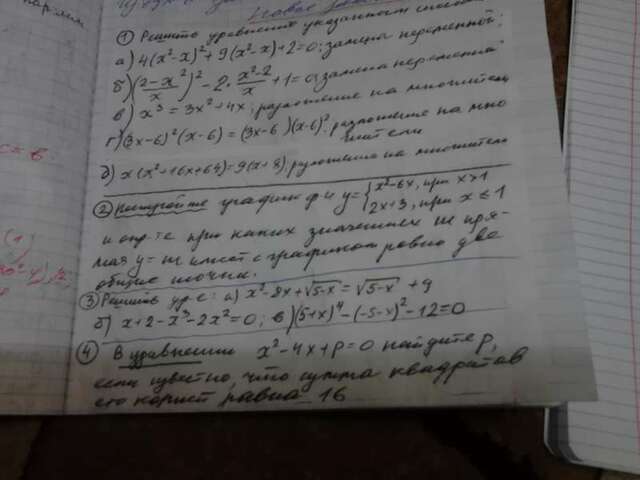 ① Решить уравнения указанным способом
а) 4(x²-x)²+9(x²-x)+2=0; замены переменной;
б) ((2-x²)/x)² - 2·(x²-2)/x + 1=0; замена переменной
в) x³=3x²+4x; разложение на множители
г) (3x-6)²(x-6)=(3x-6)(x-6)²; разложение на мно
жители
д) x(x²+16x+64)=9(x+8); разложение на множители
② Постройте график ф-и y={x²-6x, при x>1
2x+3, при x≤1
и опр-те при каких значениях m пря-
мая y=m имеет с графиком ровно две
общие точки.
③ Решить ур-е: а) x²-8x+√5-x=√5-x+9
б) x+2-x³-2x²=0; в) (5+x)⁴-(-5-x)²-12=0
④ В уравнении x²-4x+p=0 найдите p,
если известно, что сумма квадратов
его корней равна 16